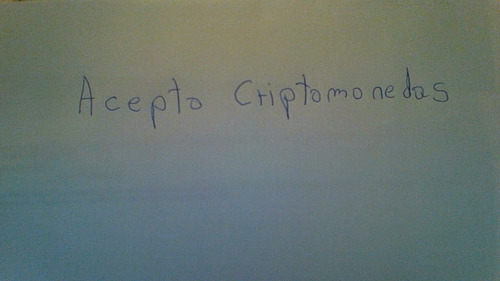 Acepto Criptomonedas